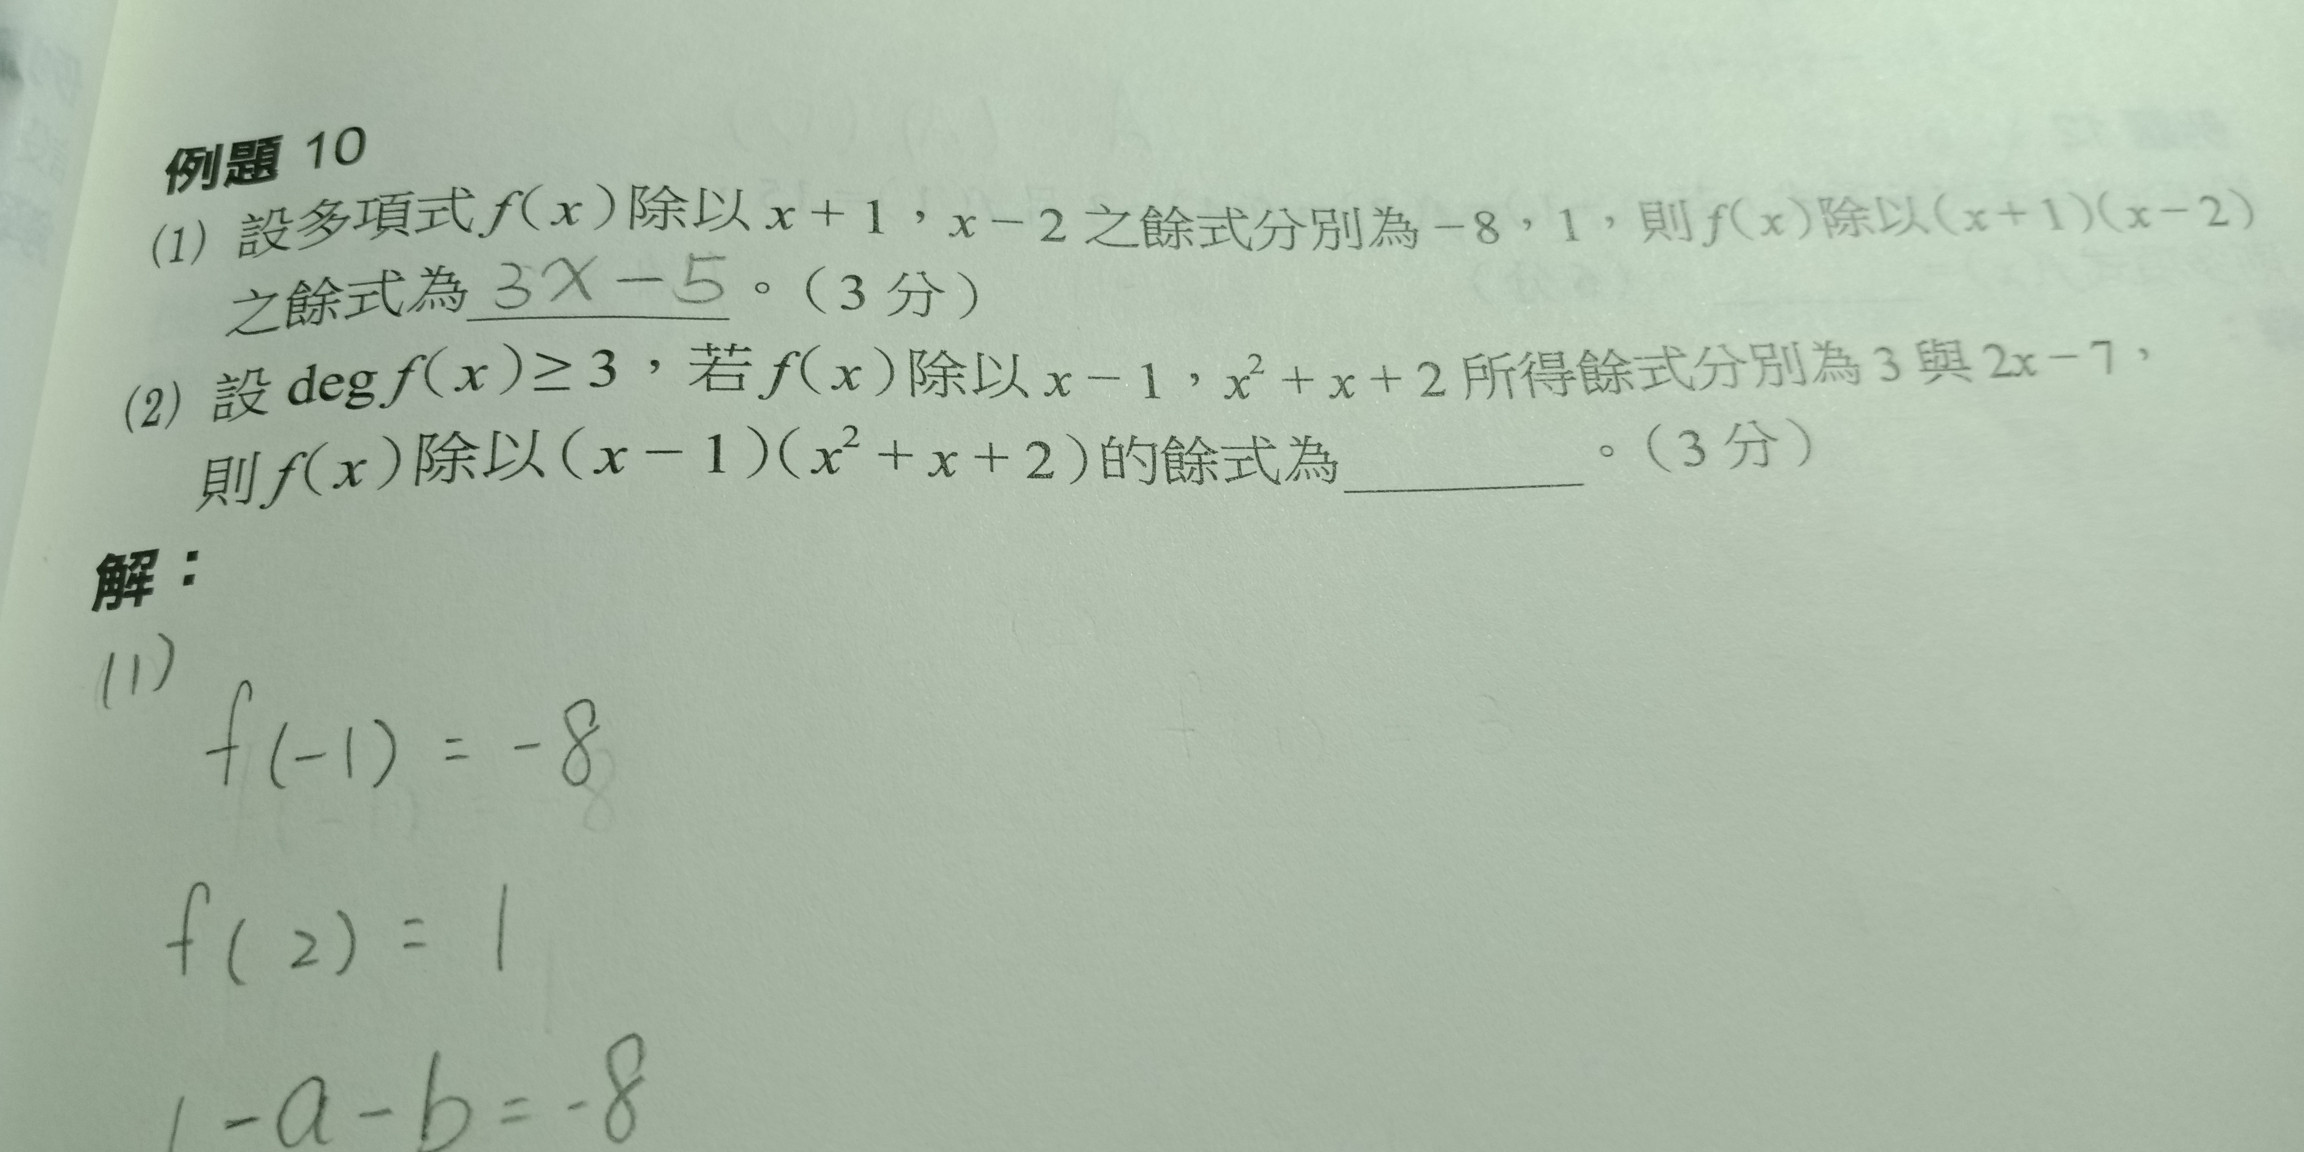 例題 10
(1) 設多項式 f(x) 除以 x + 1，x − 2 之餘式分別為 −8，1，則 f(x) 除以 (x+1)(x−2)
之餘式為 3x − 5 。（3 分）
(2) 設 deg f(x) ≥ 3，若 f(x) 除以 x − 1，x² + x + 2 所得餘式分別為 3 與 2x − 7，
則 f(x) 除以 (x − 1)(x² + x + 2) 的餘式為______。（3 分）
解：
(1)
f(-1) = -8
f(2) = 1
1 - a - b = -8